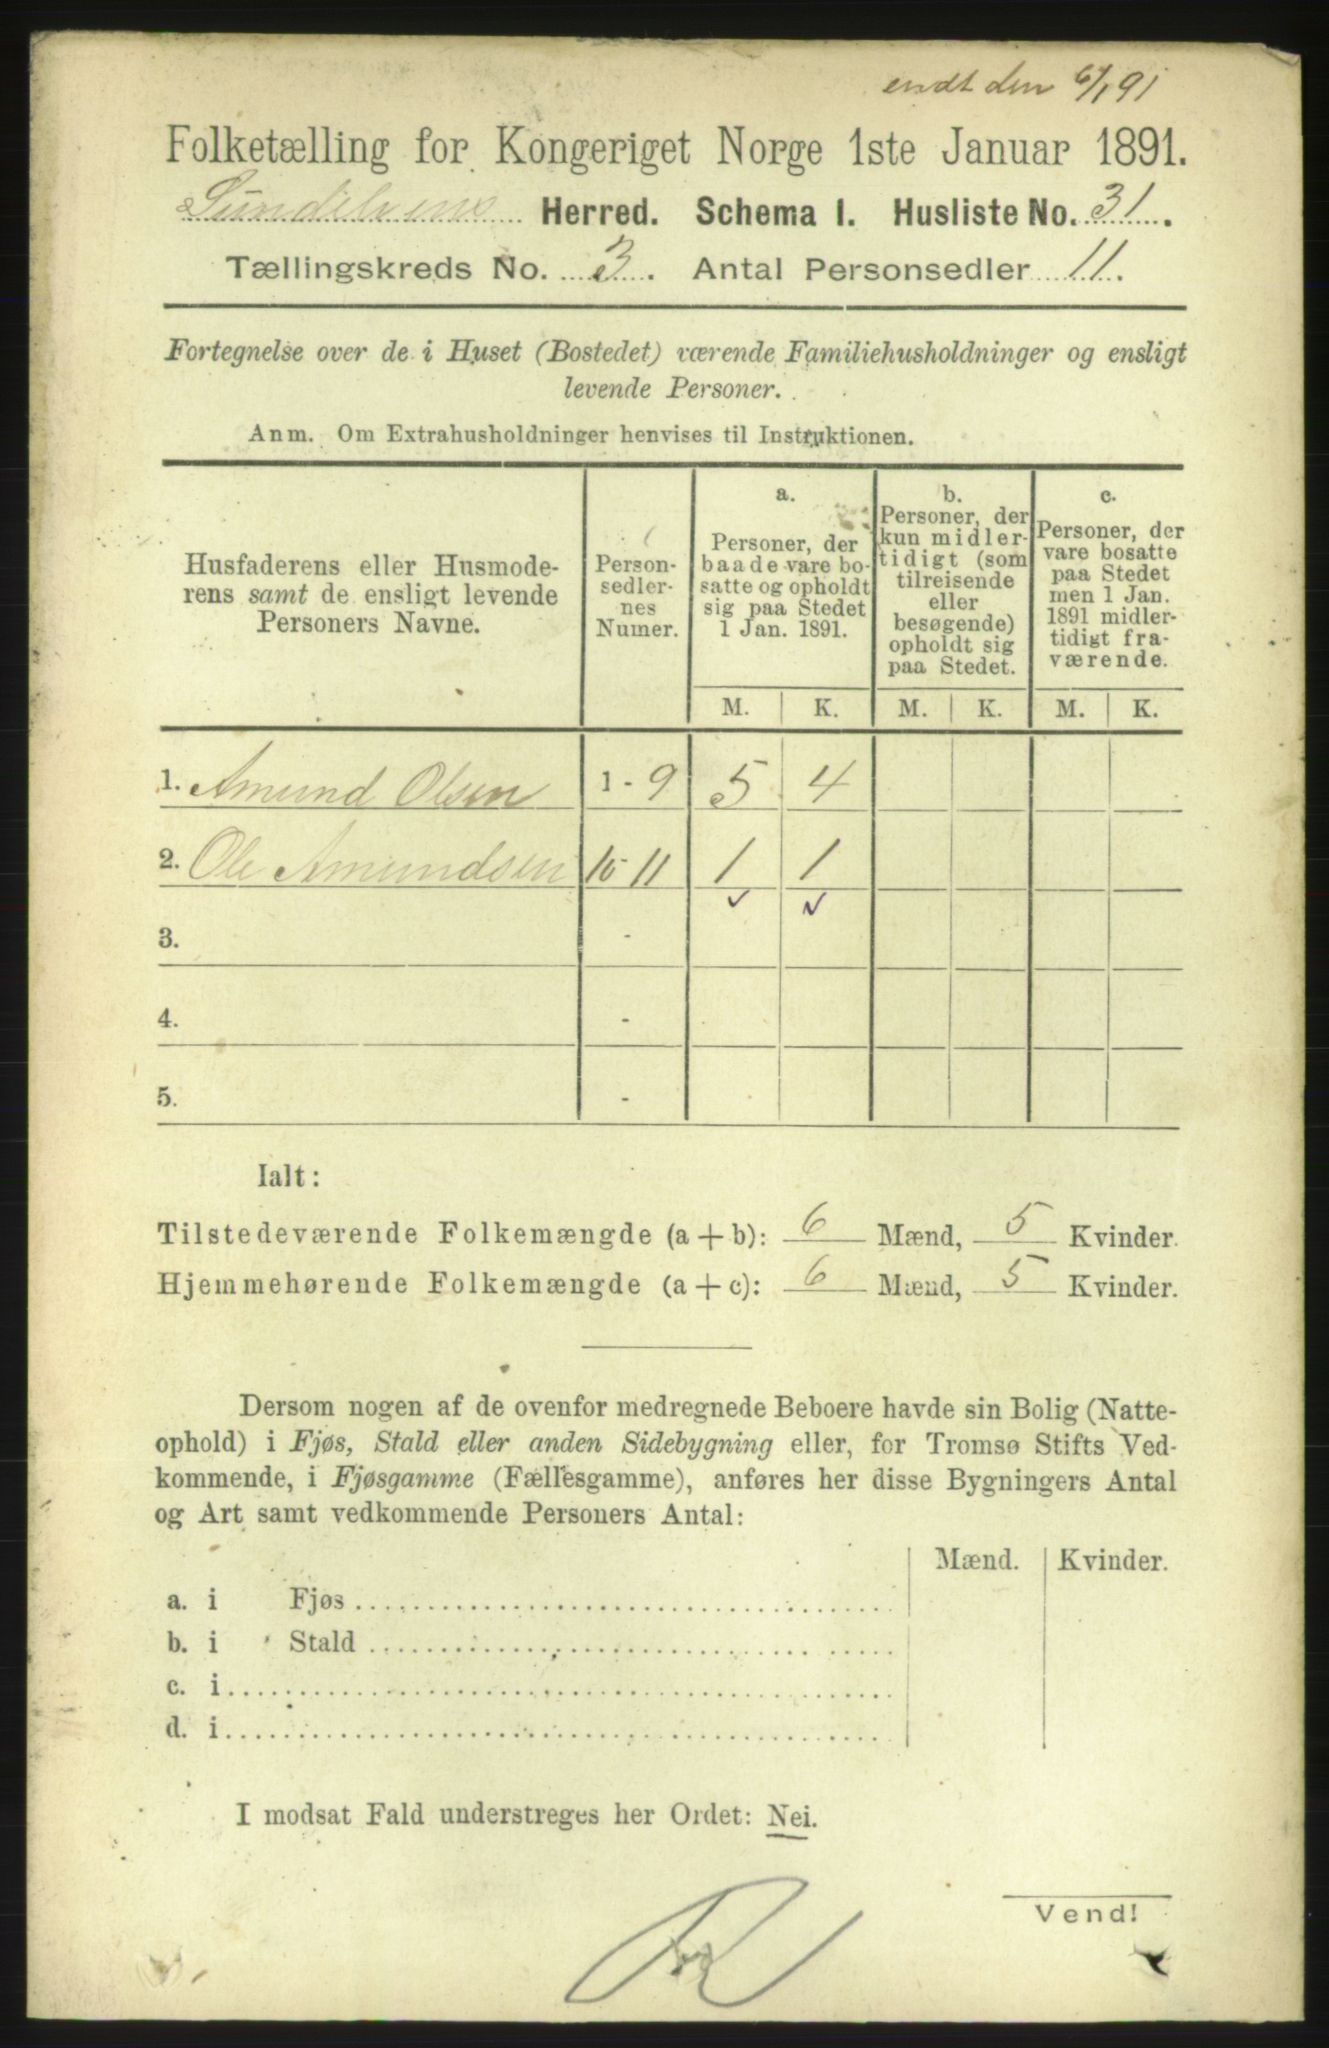 endt den 6/1 91
Folketælling for Kongeriget Norge 1ste Januar 1891.
Sundelvens Herred. Schema 1. Husliste No. 31.
Tællingskreds No. 3. Antal Personsedler 11.
Fortegnelse over de i Huset (Bostedet) værende Familiehusholdninger og ensligt
levende Personer.
Anm. Om Extrahusholdninger henvises til Instruktionen.
Husfaderens eller Husmode-
rens samt de ensligt levende
Personers Navne.
Person-
sedler-
nes
Numer.
a.
Personer, der
baade vare bo-
satte og opholdt
sig paa Stedet
1 Jan. 1891.
b.
Personer, der
kun midler-
tidigt (som
tilreisende
eller
besøgende)
opholdt sig
paa Stedet.
c.
Personer, der
vare bosatte
paa Stedet
men 1 Jan.
1891 midler-
tidigt fra-
værende.
M. K. M. K. M. K.
1. Amund Olsen 1 - 9 5 4
2. Ole Amundsen 10 - 11 1 1
3. -
4. -
5. -
Ialt:
Tilstedeværende Folkemængde (a + b): 6 Mænd, 5 Kvinder.
Hjemmehørende Folkemængde (a + c): 6 Mænd, 5 Kvinder.
Dersom nogen af de ovenfor medregnede Beboere havde sin Bolig (Natte-
ophold) i Fjøs, Stald eller anden Sidebygning eller, for Tromsø Stifts Ved-
kommende, i Fjøsgamme (Fællesgamme), anføres her disse Bygningers Antal
og Art samt vedkommende Personers Antal:
Mænd. Kvinder.
a. i Fjøs
b. i Stald
c. i
d. i
I modsat Fald understreges her Ordet: Nei.
Vend!